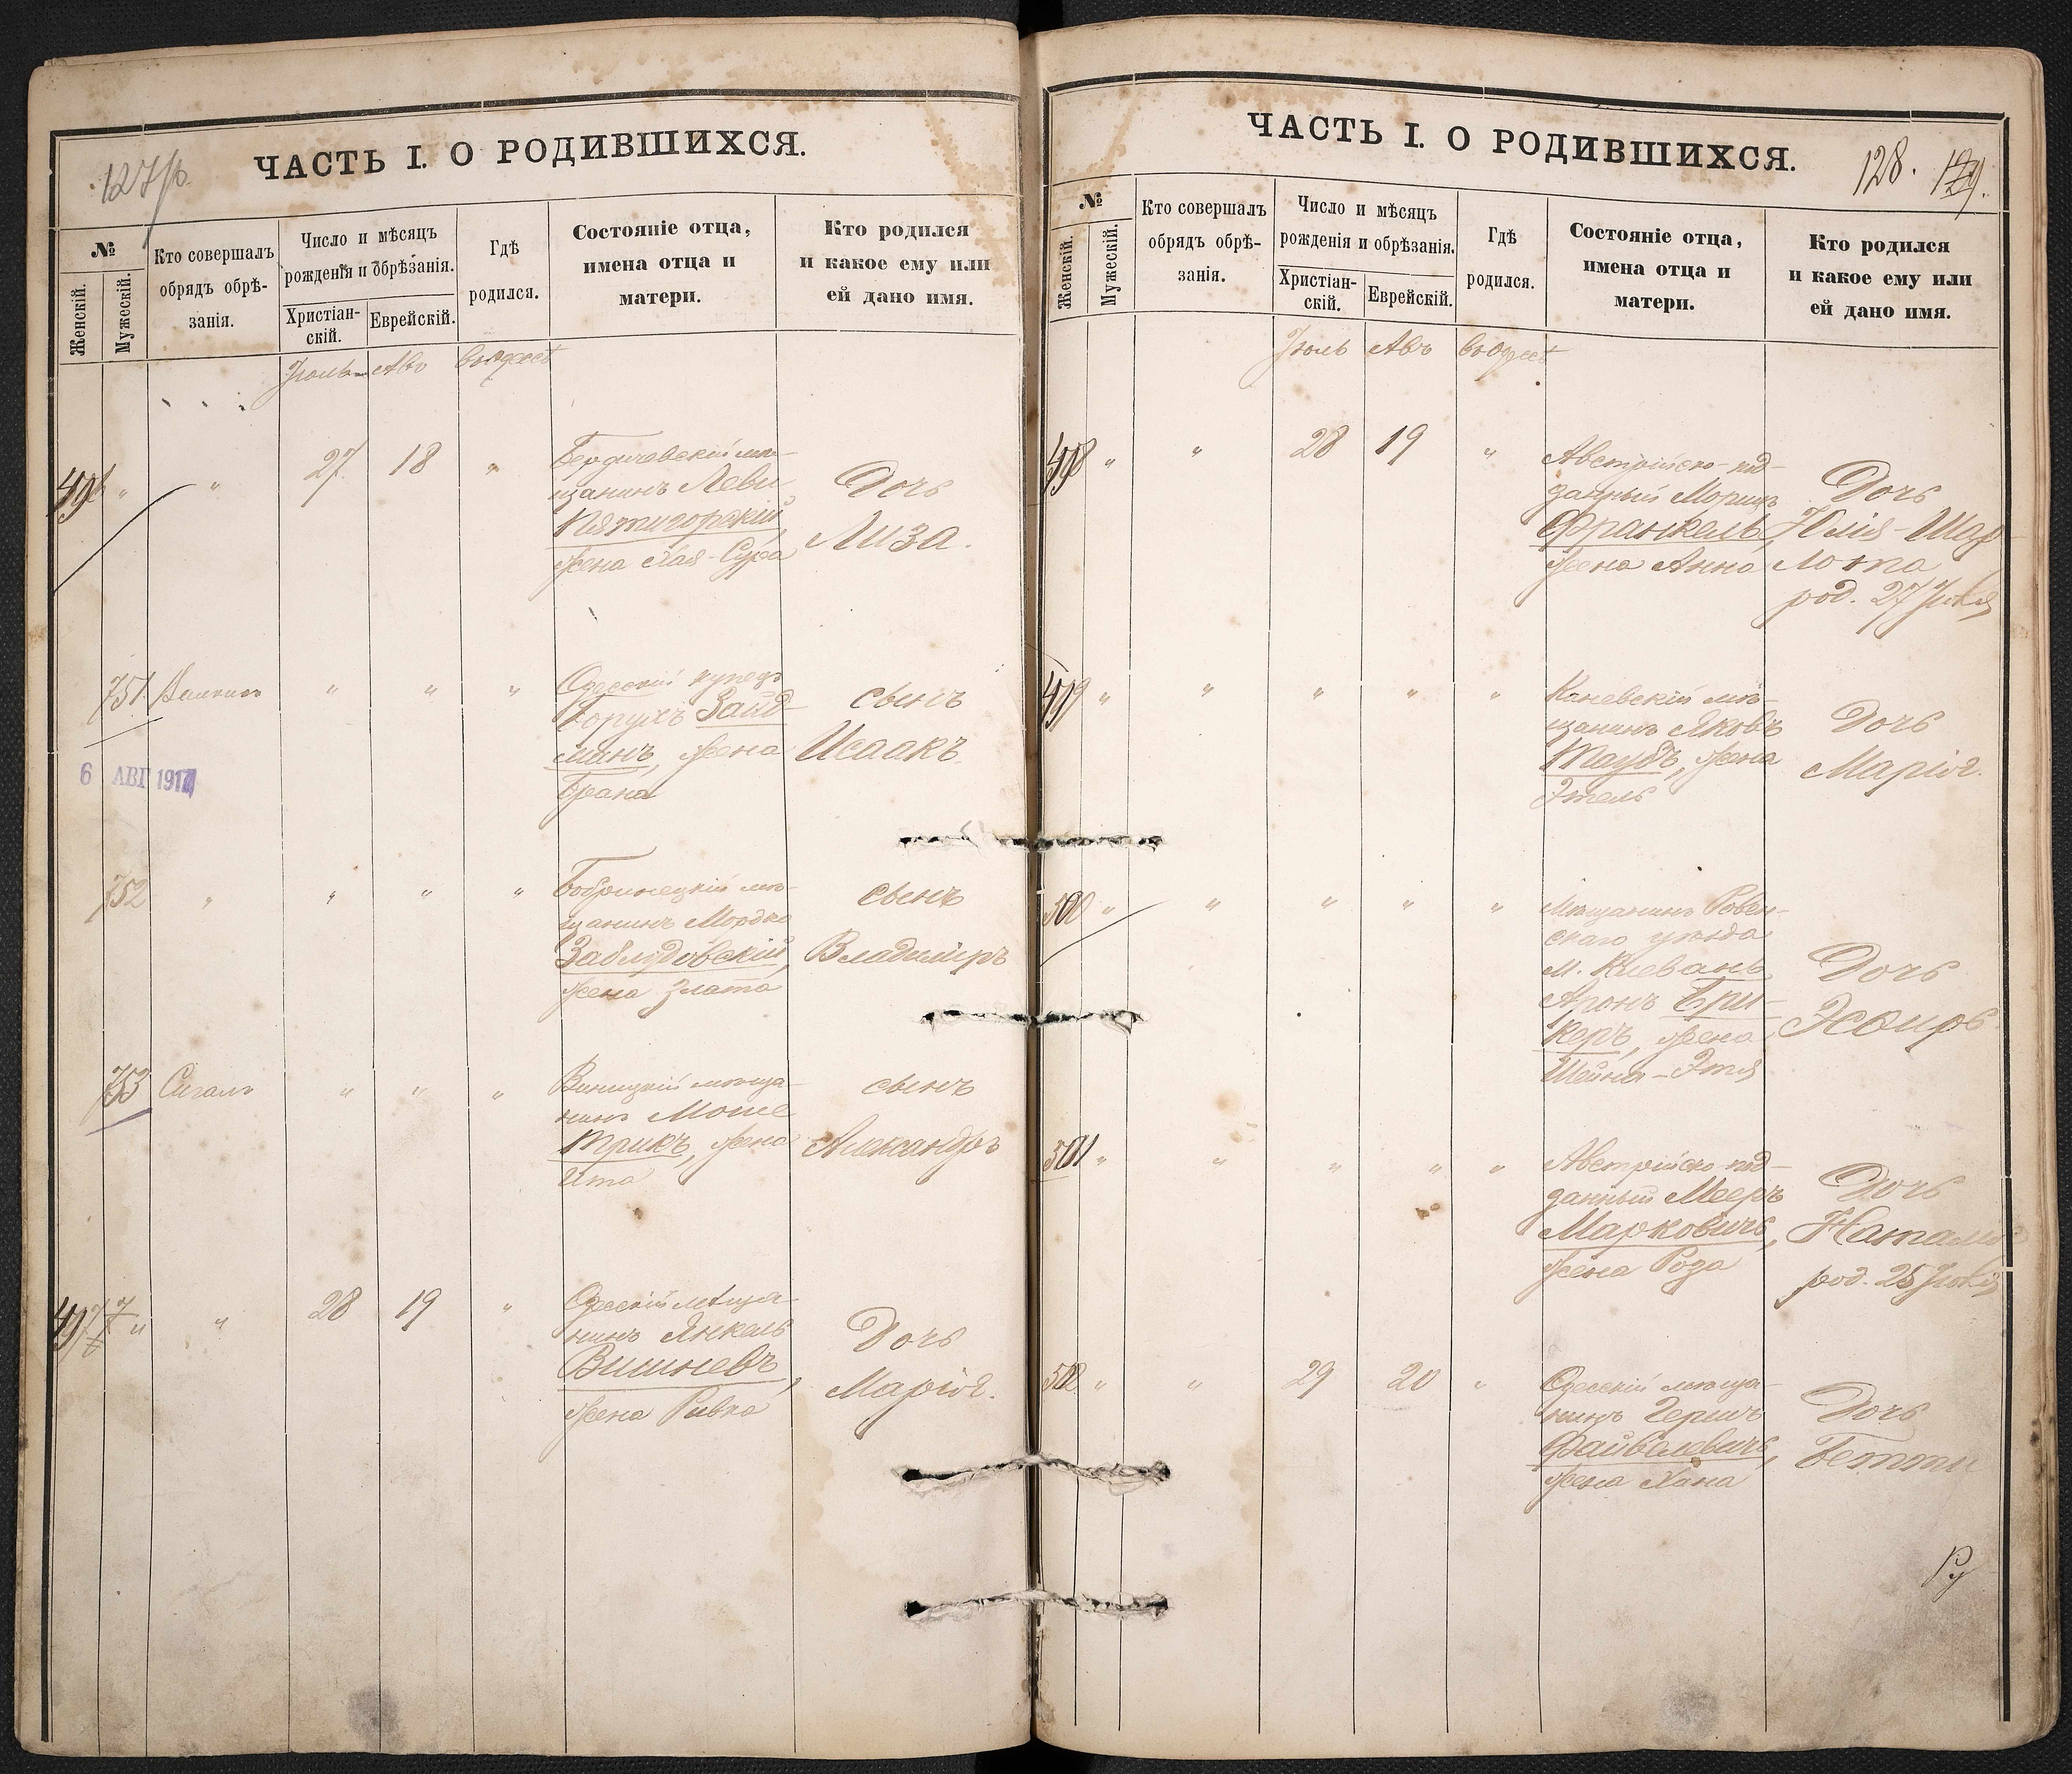 127/р.
ЧАСТЬ I. О РОДИВШИХСЯ.
№
Женскій.
Мужескій.
Кто совершалъ
обрядъ обрѣ-
занія.
Число и мѣсяцъ
рожденія и обрѣзанія.
Христіан-
скій.
Еврейскій.
Гдѣ
родился.
Состояніе отца,
имена отца и
матери.
Кто родился
и какое ему или
ей дано имя.
Іюль Авъ въ Одессѣ
496 " " 27 18 "
Бердичевскій мѣ-
щанинъ Леви
Пятигорскій,
жена Хая-Сура
Дочь
Лиза.
751. " " "
Одесскій купецъ
Борухъ Зайд-
манъ, жена
Брана
сынъ
Исаакъ.
6 АВГ 1917
752 " " " "
Бобринецкій мѣ-
щанинъ Мордко
Заблудовскій,
жена Злата
сынъ
Владиміръ
753 Сигалъ " " "
Виницкій мѣща-
нинъ Моше
Трикъ, жена
Ита
сынъ
Александръ
497 " " 28 19 "
Одесскій мѣща-
нинъ Янкель
Вишневъ,
жена Ривка
Дочь
Марія.
ЧАСТЬ I. О РОДИВШИХСЯ.
128. 129.
№
Женскій.
Мужескій.
Кто совершалъ
обрядъ обрѣ-
занія.
Число и мѣсяцъ
рожденія и обрѣзанія.
Христіан-
скій.
Еврейскій.
Гдѣ
родился.
Состояніе отца,
имена отца и
матери.
Кто родился
и какое ему или
ей дано имя.
Іюль Авъ въ Одессѣ
498 " " 28 19 "
Австрійско-под-
данный Морицъ
Франкель,
жена Анна
Дочь
Юлія-Шар-
лота
род. 27 Іюля
499 " " " " "
Каневскій мѣ-
щанинъ Яковъ
Таубъ, жена
Этель
Дочь
Марія.
500 " " " " "
Мѣщанинъ Ровен-
скаго уѣзда
м. Клевань
Аронъ Бри-
керъ, жена
Шейна-Этя
Дочь
Эсѳирь.
501 " " " " "
Австрійско-под-
данный Мееръ
Марковичъ,
жена Роза
Дочь
Наталія
род. 25 Іюля
502 " " 29 20 "
Одесскій мѣща-
нинъ Гершъ
Файвелевичъ,
жена Хана
Дочь
Бетти